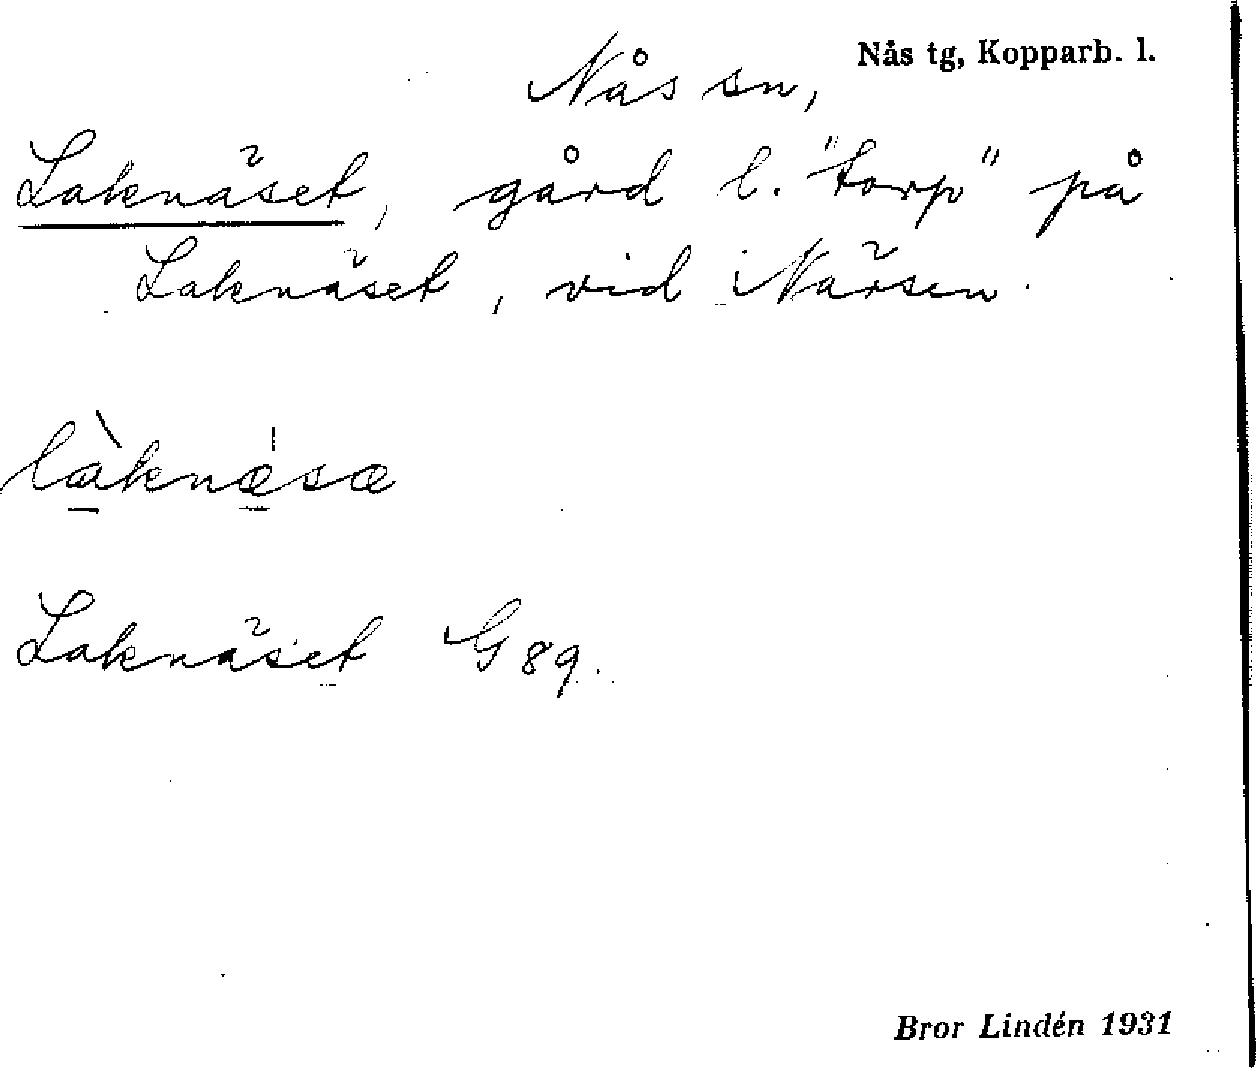 Nås tg, Kopparb. l.
Nås sn,
Laknäset, gård l. "torp" på
Laknäset, vid Närsen.
làknæ̍sæ
Laknäset G 89.
Bror Lindén 1931